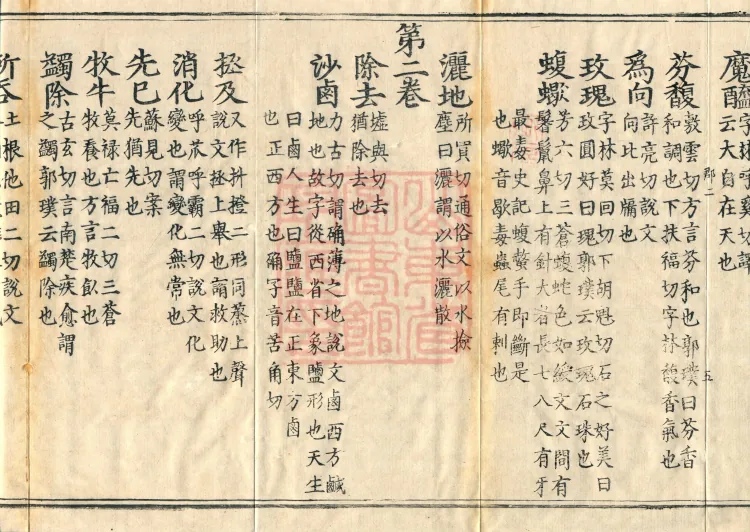 云大自在天也
郡二
五
芬馥
敷雲切方言芬和也郭璞曰芬香
和調也下扶福切字林馥香氣也
為向
許亮切說文
向北出牖也
玫瑰
字林莫回切下胡魁切石之好美曰
玫圓好曰瑰郭璞云玫瑰石珠也
蝮蠍
芳六切三蒼蝮蛇色如綬文文間有
鬐鬣鼻上有針大者長七八尺有牙
最毒史記蝮螫手即斷是
也蠍音歇毒蟲尾有刺也
第二卷
灑地
所買切通俗文以水撿
塵曰灑謂以水灑散
除去
墟與切去
猶除去也
沙鹵
力古切謂确薄之地說文鹵西方鹹
地也故字從西省下象鹽形也天生
曰鹵人生曰鹽鹽在正東方鹵
也正西方也确字音苦角切
拯及
又作抍撜二形同蒸上聲
說文拯上舉也謂救助也
消化
呼瓜呼霸二切說文化
變也謂變化無常也
先已
蘇見切案
先猶先也
牧牛
莫禄亡福二切三蒼
牧養也方言牧飤也
蠲除
古玄切言南楚疾愈謂
之蠲郭璞云蠲除也
所吞
土根他田二切說文